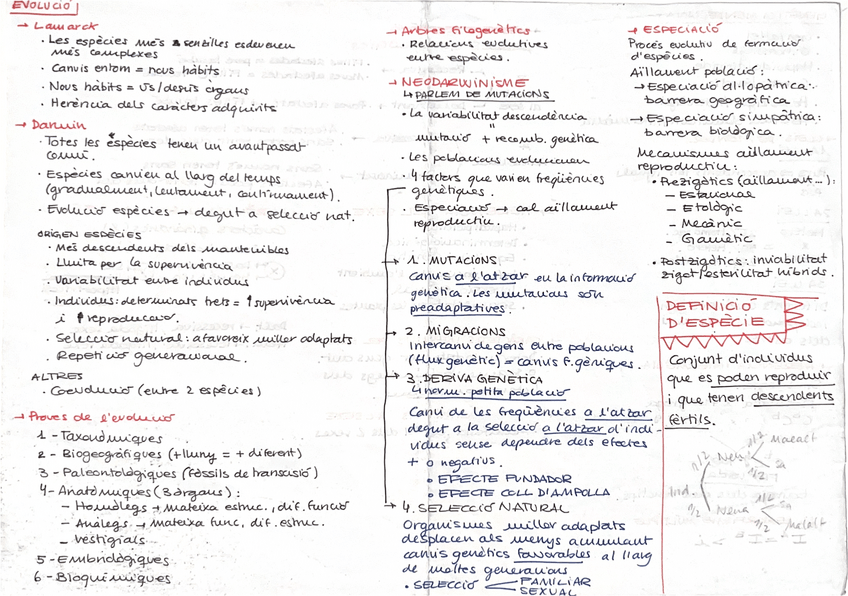 EVOLUCIÓ
→ Lamarck
· Les espècies més senzilles esdevenen
més complexes
· Canvis entorn = nous hàbits
· Nous hàbits = ús/desús òrgans
· Herència dels caràcters adquirits
→ Darwin
· Totes les espècies tenen un avantpassat
comú.
· Espècies canvien al llarg del temps
(gradualment, lentament, contínuament).
· Evolució espècies → degut a selecció nat.
ORIGEN ESPÈCIES
· Més descendents dels mantenibles
· Lluita per la supervivència
· Variabilitat entre individus
· Individus: determinats trets = ↑ supervivència
i ↑ reproducció.
· Selecció natural: afavoreix millor adaptats
· Repetició generacional.
ALTRES
· Coevolució (entre 2 espècies)
→ Proves de l'evolució
1 - Taxonòmiques
2 - Biogeogràfiques (+lluny = + diferent)
3 - Paleontològiques (fòssils de transició)
4 - Anatòmiques (3 òrgans):
– Homòlegs → mateixa estruc., dif. funció
– Anàlegs → mateixa func, dif. estruc.
– Vestigials
5 - Embriològiques
6 - Bioquímiques
→ Arbres filogenètics
· Relacions evolutives
entre espècies.
→ NEODARWINISME
↳ PARLEM DE MUTACIONS
· La variabilitat descendència
"
mutació + recomb. genètica
· Les poblacions evolucionen
· 4 factors que varien freqüències
genètiques.
· Especiació → cal aïllament
reproductiu.
1. MUTACIONS
Canvis a l'atzar en la informació
genètica. Les mutacions són
preadaptatives.
2. MIGRACIONS
Intercanvi de gens entre poblacions
(flux genètic) = canvis F. gèniques.
3. DERIVA GENÈTICA
↳ norm. petita població
Canvi de les freqüències a l'atzar
degut a la selecció a l'atzar d'indi-
vidus sense dependre dels efectes
+ o negatius.
EFECTE FUNDADOR
EFECTE COLL D'AMPOLLA
4. SELECCIÓ NATURAL
Organismes millor adaptats
desplacen als menys acumulant
canvis genètics favorables al llarg
de moltes generacions
· SELECCIÓ FAMILIAR
SEXUAL
→ ESPECIACIÓ
Procés evolutiu de formació
d'espècies.
Aïllament població:
→ Especiació al·lopàtrica:
barrera geogràfica
→ Especiació simpàtrica:
barrera biològica.
Mecanismes aïllament
reproductiu:
· Prezigòtics (aïllament...):
– Estacional
– Etològic
– Mecànic
– Gamètic
· Postzigòtics: inviabilitat
zigot/esterilitat híbrids.
DEFINICIÓ
D'ESPÈCIE
Conjunt d'individus
que es poden reproduir
i que tenen descendents
fèrtils.